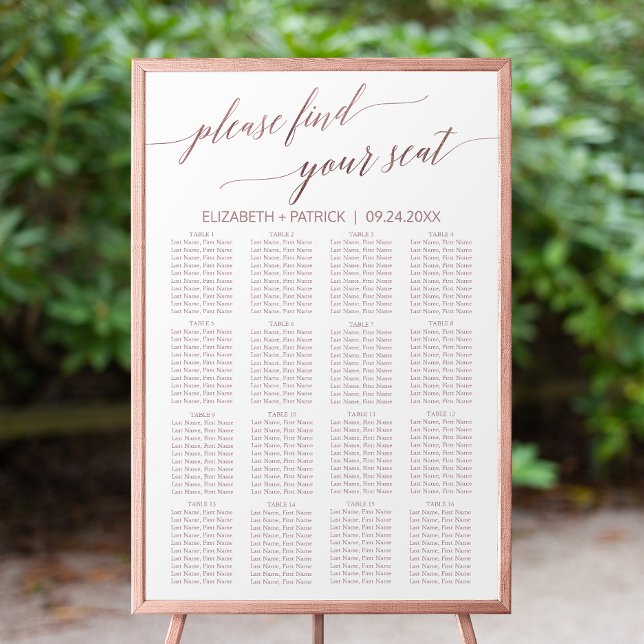 please find
your seat
ELIZABETH + PATRICK | 09.24.20XX
TABLE 1
Last Name, First Name
Last Name, First Name
Last Name, First Name
Last Name, First Name
Last Name, First Name
Last Name, First Name
Last Name, First Name
Last Name, First Name
Last Name, First Name
TABLE 2
Last Name, First Name
Last Name, First Name
Last Name, First Name
Last Name, First Name
Last Name, First Name
Last Name, First Name
Last Name, First Name
Last Name, First Name
Last Name, First Name
TABLE 3
Last Name, First Name
Last Name, First Name
Last Name, First Name
Last Name, First Name
Last Name, First Name
Last Name, First Name
Last Name, First Name
Last Name, First Name
Last Name, First Name
TABLE 4
Last Name, First Name
Last Name, First Name
Last Name, First Name
Last Name, First Name
Last Name, First Name
Last Name, First Name
Last Name, First Name
Last Name, First Name
Last Name, First Name
TABLE 5
Last Name, First Name
Last Name, First Name
Last Name, First Name
Last Name, First Name
Last Name, First Name
Last Name, First Name
Last Name, First Name
Last Name, First Name
Last Name, First Name
TABLE 6
Last Name, First Name
Last Name, First Name
Last Name, First Name
Last Name, First Name
Last Name, First Name
Last Name, First Name
Last Name, First Name
Last Name, First Name
Last Name, First Name
TABLE 7
Last Name, First Name
Last Name, First Name
Last Name, First Name
Last Name, First Name
Last Name, First Name
Last Name, First Name
Last Name, First Name
Last Name, First Name
Last Name, First Name
TABLE 8
Last Name, First Name
Last Name, First Name
Last Name, First Name
Last Name, First Name
Last Name, First Name
Last Name, First Name
Last Name, First Name
Last Name, First Name
Last Name, First Name
TABLE 9
Last Name, First Name
Last Name, First Name
Last Name, First Name
Last Name, First Name
Last Name, First Name
Last Name, First Name
Last Name, First Name
Last Name, First Name
Last Name, First Name
TABLE 10
Last Name, First Name
Last Name, First Name
Last Name, First Name
Last Name, First Name
Last Name, First Name
Last Name, First Name
Last Name, First Name
Last Name, First Name
Last Name, First Name
TABLE 11
Last Name, First Name
Last Name, First Name
Last Name, First Name
Last Name, First Name
Last Name, First Name
Last Name, First Name
Last Name, First Name
Last Name, First Name
Last Name, First Name
TABLE 12
Last Name, First Name
Last Name, First Name
Last Name, First Name
Last Name, First Name
Last Name, First Name
Last Name, First Name
Last Name, First Name
Last Name, First Name
Last Name, First Name
TABLE 13
Last Name, First Name
Last Name, First Name
Last Name, First Name
Last Name, First Name
Last Name, First Name
Last Name, First Name
Last Name, First Name
Last Name, First Name
Last Name, First Name
TABLE 14
Last Name, First Name
Last Name, First Name
Last Name, First Name
Last Name, First Name
Last Name, First Name
Last Name, First Name
Last Name, First Name
Last Name, First Name
Last Name, First Name
TABLE 15
Last Name, First Name
Last Name, First Name
Last Name, First Name
Last Name, First Name
Last Name, First Name
Last Name, First Name
Last Name, First Name
Last Name, First Name
Last Name, First Name
TABLE 16
Last Name, First Name
Last Name, First Name
Last Name, First Name
Last Name, First Name
Last Name, First Name
Last Name, First Name
Last Name, First Name
Last Name, First Name
Last Name, First Name